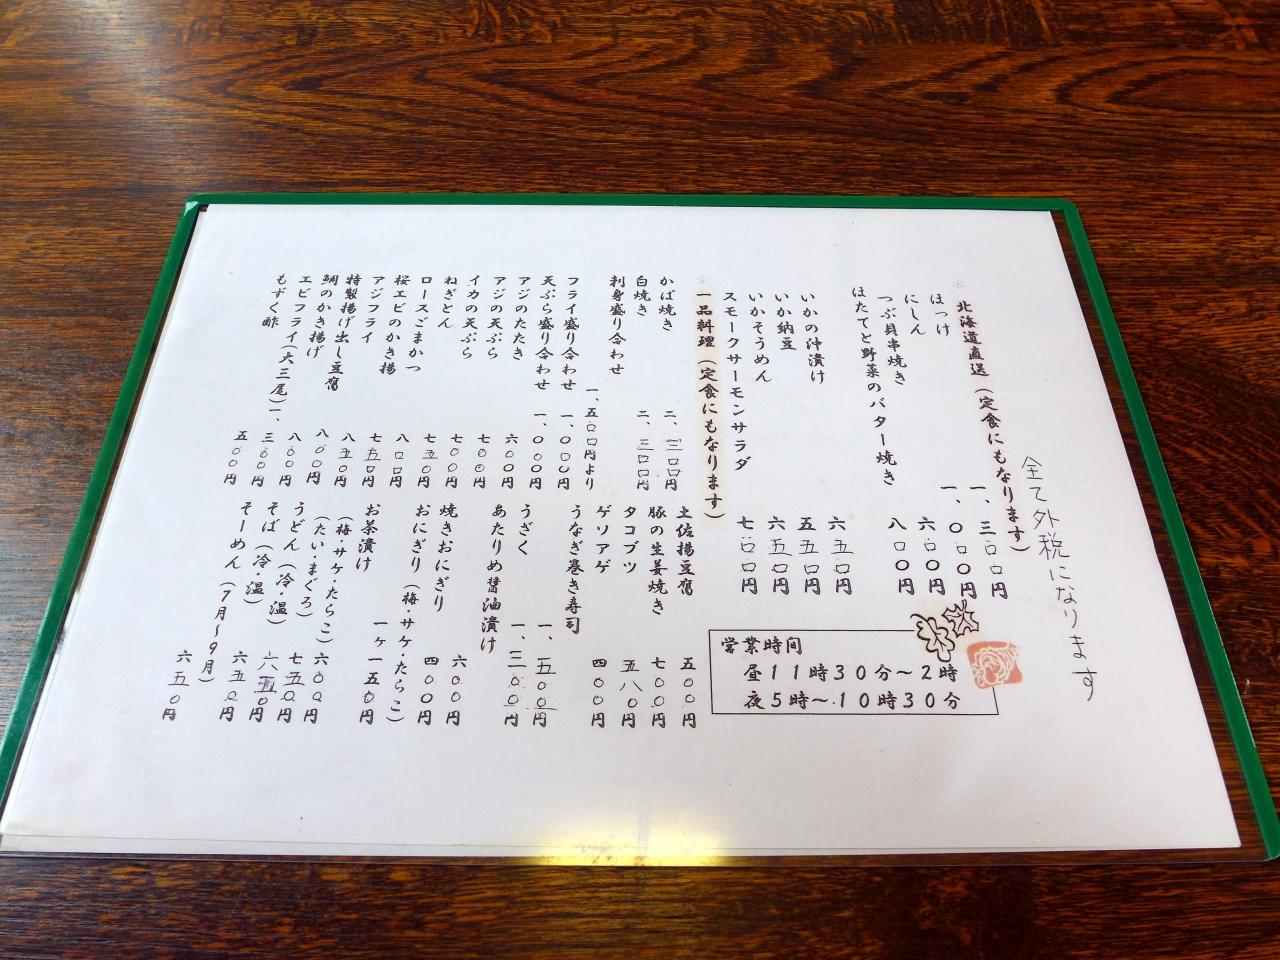 全て外税になります
北海道直送(定食にもなります)
ほっけ 一、三〇〇円
にしん 一、〇〇〇円
つぶ貝串焼き 六〇〇円
ほたてと野菜のバター焼き 八〇〇円
いかの沖漬け 六五〇円
いか納豆 五五〇円
いかそうめん 六五〇円
スモークサーモンサラダ 七〇〇円
一品料理(定食にもなります)
かば焼き 二、三〇〇円
白焼き 二、三〇〇円
刺身盛り合わせ 一、五〇〇円より
フライ盛り合わせ 一、〇〇〇円
天ぷら盛り合わせ 一、〇〇〇円
アジのたたき 六〇〇円
アジの天ぷら 七〇〇円
イカの天ぷら 七〇〇円
ねぎとん 七五〇円
ロースごまかつ 八〇〇円
桜エビのかき揚 七五〇円
アジフライ 八五〇円
特製揚げ出し豆腐 八〇〇円
鯛のかき揚げ 八〇〇円
エビフライ(大三尾)一、三〇〇円
もずく酢 五〇〇円
土佐揚豆腐 五〇〇円
豚の生姜焼き 七〇〇円
タコブツ 五八〇円
ゲソアゲ 四〇〇円
うなぎ巻き寿司 一、五〇〇円
うざく 一、三〇〇円
あたりめ醤油漬け 六〇〇円
焼きおにぎり 四〇〇円
おにぎり(梅・サケ・たらこ) 一ヶ一五〇円
お茶漬け
(梅・サケ・たらこ) 六〇〇円
(たい・まぐろ) 七五〇円
うどん(冷・温) 五〇円
そば(冷・温) 六五〇円
そーめん(7月〜9月) 六五〇円
営業時間
昼11時30分〜2時
夜5時〜10時30分